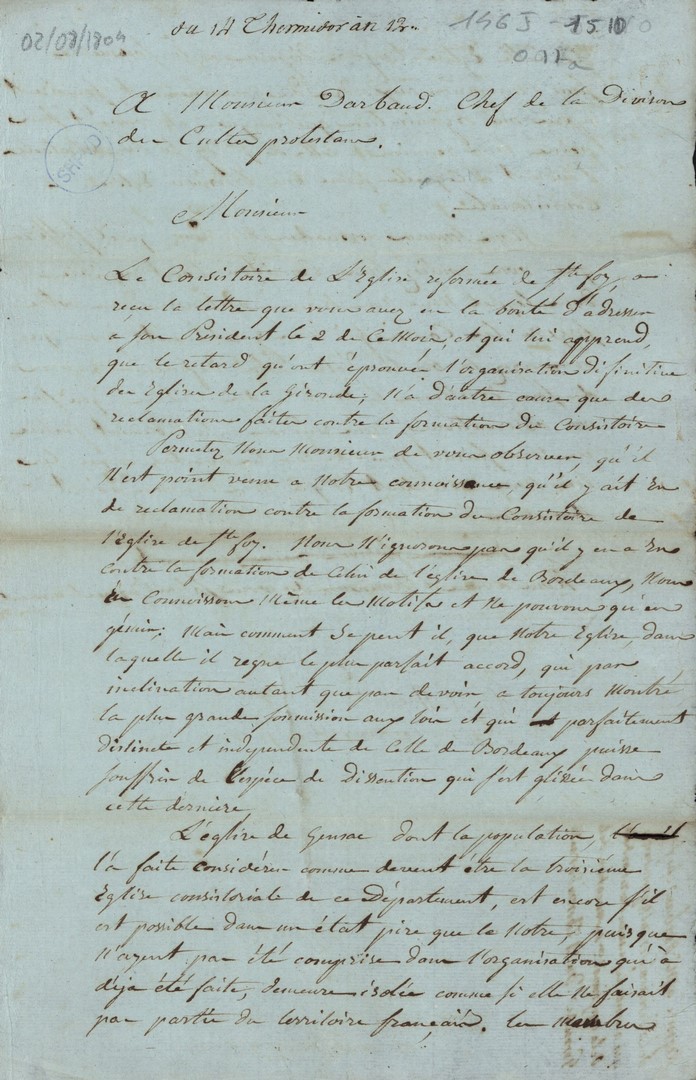 02/08/1804
du 14 Thermidor an 12.
146 J 15 10
007a
A Monsieur Darbaud. Chef de la Division
des Cultes protestans.
SHP
Monsieur
Le Consistoire de L'Eglise reformée de Ste foy, a
reçu la lettre que vous avez eu la bonté d'adresser
a son Président le 2 de Ce Mois, et qui lui apprend,
que le retard qu'ont éprouvée l'organisation difinitive
des Eglises de la Gironde, N'a d'autre cause que des
reclamations faites contre la formation du Consistoire
Permetez Nous Monsieur de vous observer, qu'il
N'est point venu a Notre connoissance, qu'il y ait Eu
de reclamation contre la formation du Consistoire de
l'Eglise de Ste foy. Nous N'ignorons pas qu'il y en a Eu
contre la formation de Celui de l'église de Bordeaux, Nous
En Connoissons Même les Motifs et Ne pouvons qu'en
gémir; Mais comment se peut il, que Notre Eglise, dans
laquelle il regne le plus parfait accord, qui par
inclination autant que par devoir, a toujours Montré
la plus grande soumission aux loix et qui parfaitement
distincte et independente de Celle de Bordeaux puisse
souffrir de l'espéce de Dissention qui s'est glissée dans
cette dernière
L'église de Gensac dont la population,
l'a faite considérer comme devent être la troisiéme
Eglise consistoriale de ce Département, est encore s'il
est possible dans un état pire que la Notre, puisque
N'ayent pas été comprise dans l'organisation qui a
déja été faite, demeure isolée comme si elle Ne faisait
pas partie du territoire français. les Membres